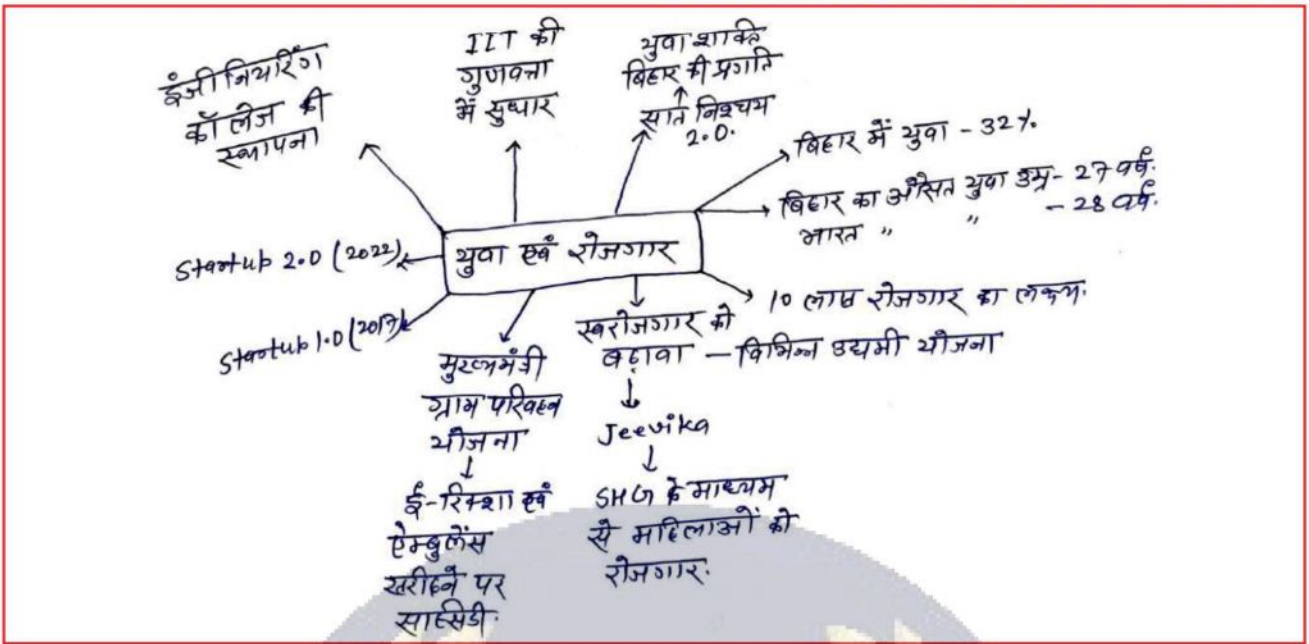 इंजीनियरिंग
कॉलेज की
स्थापना
IIT की
गुणवत्ता
में सुधार
युवा शक्ति
बिहार की प्रगति
↑
सात निश्चय
2.0.
बिहार में युवा - 32%.
बिहार का औसत युवा उम्र - 27 वर्ष.
भारत " " - 28 वर्ष.
युवा एवं रोजगार
Startup 2.0 (2022)
Startup 1.0 (2017)
10 लाख रोजगार का लक्ष्य.
स्वरोजगार को
बढ़ावा - विभिन्न उद्यमी योजना
↓
Jeevika
↓
SHG के माध्यम
से महिलाओं को
रोजगार.
मुख्यमंत्री
ग्राम परिवहन
योजना
↓
ई-रिक्शा एवं
ऐम्बुलेंस
खरीदने पर
साब्सिडी.